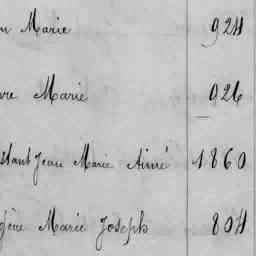 Marie 924
Marie 926
Jean Marie Aimé 1860
Marie Joseph 804